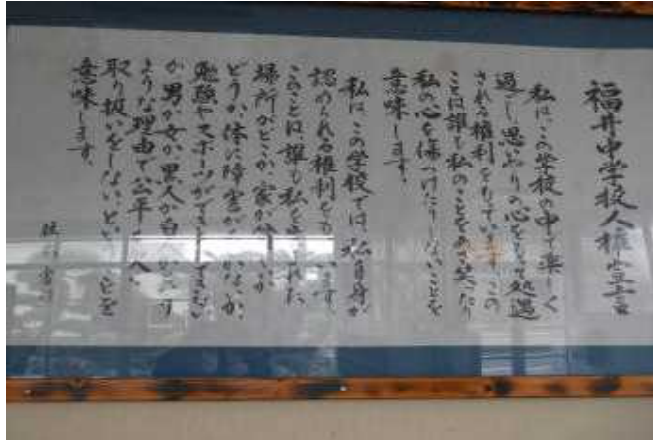 福井中学校人権宣言
私は、この学校の中で楽しく
過ごし、思いやりの心をもって処遇
される権利をもっています。この
ことは誰も私のことをあざ笑ったり
私の心を傷つけたりしないことを
意味します。
私は、この学校では、私自身が
認められる権利をもっています。
このことは、誰も私を生まれた
場所がどこか、家が
どうか、体に障害がないか、
勉強やスポーツができる
か、男か女か、黒人か白人か
ような理由で公平でない
取り扱いをしないということを
意味します。